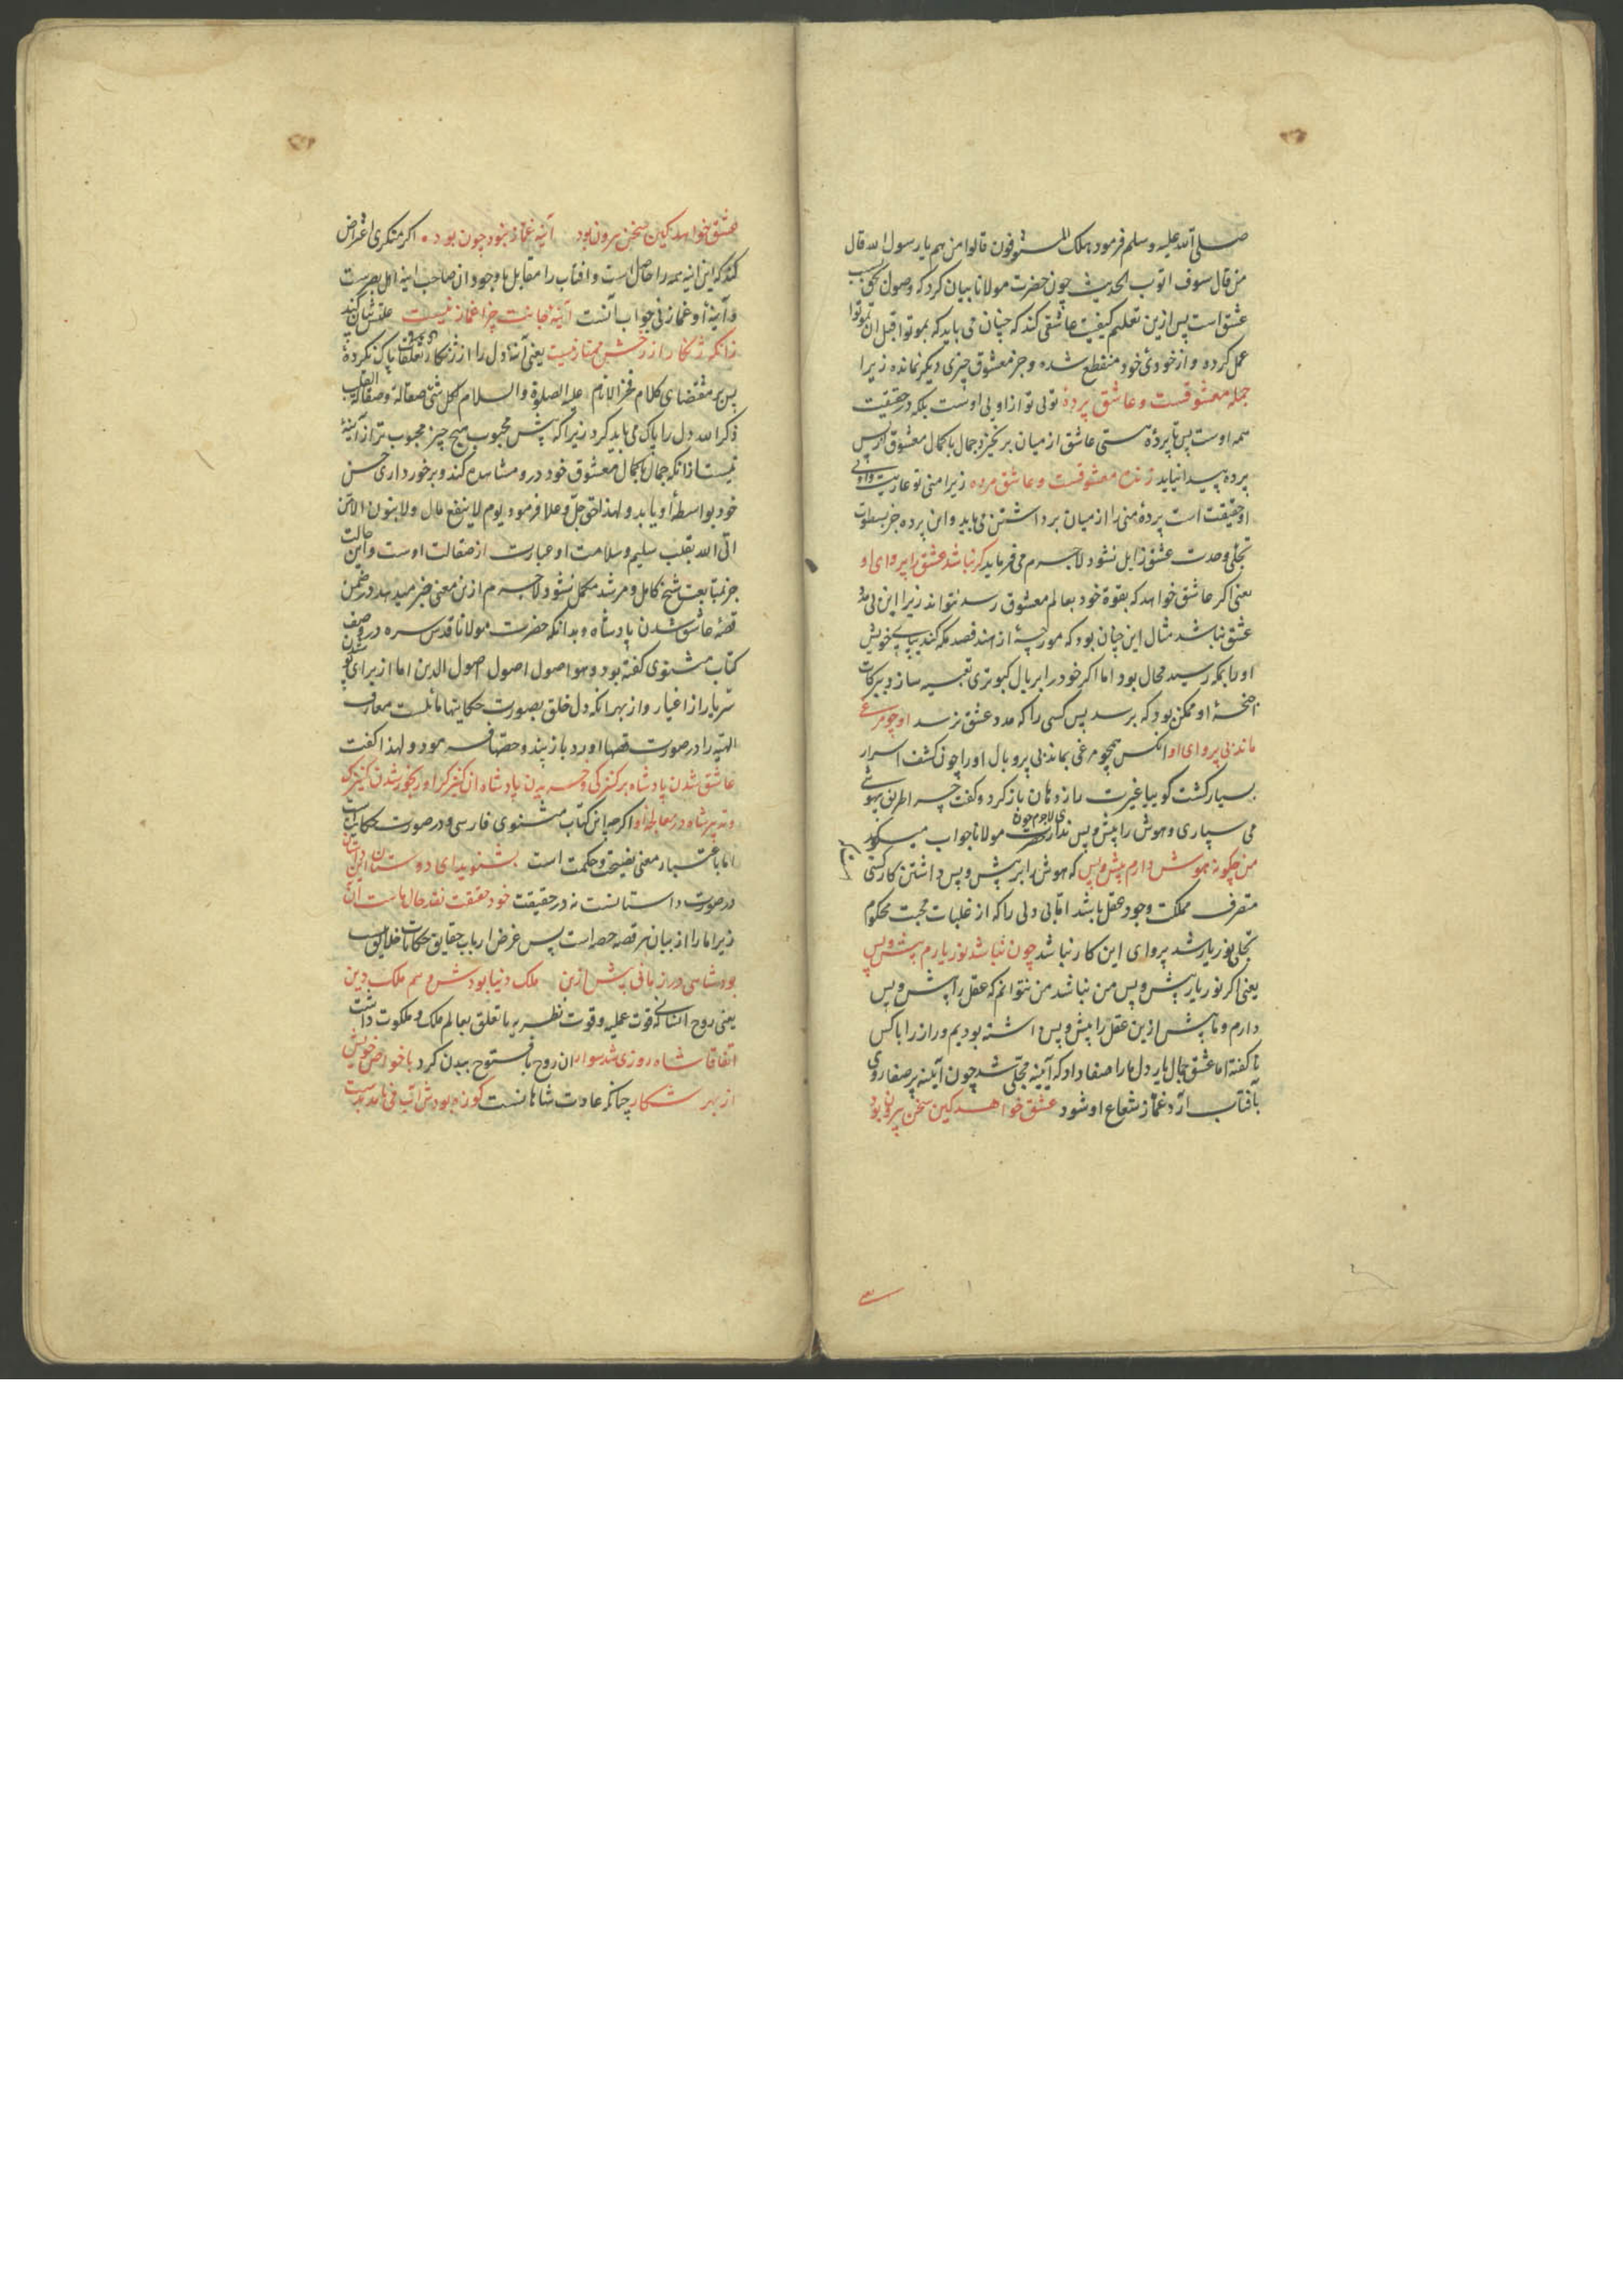 صلی الله علیه و سلم فرمود هلک المسوفون قالوا من هم یا رسول الله قال
من قال سوف اتوب الحدیث چون حضرت مولانا بیان کرد که وصول بحق بسبب
عشق است پس ازین تعلیم کیفیت عاشقی کند که چنان می باید که بموتوا قبل ان تموتوا
عمل کرده و از خودئ خود منقطع شده و جز معشوق چیزی دیکر نمانده زیرا
جمله معشوقست و عاشق پردهٔ توئی تو از اوئی اوست بلکه در حقیقت
همه اوست پس تا پردهٔ هستی عاشق از میان برنخیزد جمال با کمال معشوق از پس
پرده پیدا نیاید زنده معشوقست و عاشق مرده زیرا منی تو عاریت و اوئی
او حقیقت است پردهٔ منی را از میان برداشتن می باید و این پرده جز بسطوت
تجلی وحدت عشق زایل نشود لاجرم می فرماید کر نباشد عشق را پروای او
یعنی اکر عاشق خواهد که بقوة خود بعالم معشوق رسد نتواند زیرا این بی مدد
عشق نباشد مثال این چنان بود که مورچهٔ از هند قصد مکه کند بپای خویش
او را بمکه رسید محال بود اما اکر خود را بر بال کبوتری تعبیه سازد ببرکات
اجنحهٔ او ممکن بود که برسد پس کسی را که مدد عشق نرسد او چو مرغی
ماند بی پر وای او انکس همچو مرغی بماند بی پر و بال او را چون کشف اسرار
بسیار کشت کوییا غیرت راز دهان باز کرد و کفت چرا طریق بیهوشی
می سپاری و هوش را پیش و پس نداری لاجرم چون حضرت مولانا جواب میکوید
من چکونه هوش دارم پیش و پس که هوش را بر پیش و پس داشتن کار کسی
متصرف مملکت وجود عقل باشد اما بی دلی را که از غلبات محبت محکوم
تجلی نور یار شد پروای این کار نباشد چون نباشد نور یارم پیش و پس
یعنی اکر نور یار پیش و پس من نباشد من نتوانم که عقل را پیش و پس
دارم و ما پیش ازین عقل را پیش و پس داشته بودیم و راز را با کس
نا کفته اما عشق جمال یار دل ما را صفا داد که آیینه مجلی شد چون آیینه پرصفا روی
بآفتاب آرد غماز شعاع او شود عشق خواهد کین سخن بیرون بود
عشق خواهد کین سخن بیرون بود آینه غماز نبود چون بود اکر منکری اعتراض
کند که این آینه همه را حاصل است و افتاب را مقابل با وجود ان صاحب آینه اهل بصرست
و آینهٔ او غماز نی جواب آنست آینه ات چرا غماز نیست علتش شان کند
زانکه زنکار از رخش ممتاز نیست یعنی آینهٔ دل را از زنکار تعلقات پاک نکردهٔ
پس بمقتضای کلام فخر الانام علیه الصلوة والسلام لکل شئ صقالة و صقالة القلب
ذکر الله دل را پاک می باید کرد زیرا که پیش محبوب هیچ چیز محبوب تر از آینهٔ
نیست از آنکه جمال با کمال معشوق خود درو مشاهده کند و برخورداری حسن
خود بواسطهٔ او یابد و لهذا الحق جل و علا فرمود یوم لا ینفع مال ولا بنون الا من
اتی الله بقلب سلیم و سلامت او عبارت از صقالت اوست و این حالت
جز بمتابعت شیخ کامل و مرشد مکمل نشود لاجرم ازین معنی خبر میدهد در ضمن
قصهٔ عاشق شدن پادشاه و بدانکه حضرت مولانا قدس سره در وصف
کتاب مثنوی کفته بود و هو اصول اصول اصول الدین اما از برای
سر یار از اغیار و از بهر آنکه دل خلق بصورت حکایتها مائلست معارف
الهیه را در صورت قصها آورد باز پند و حصتها فرمود و لهذا کفت
عاشق شدن پادشاه بر کنیزکی و خریدن پادشاه ان کنیزک را و رنجور شدن کنیزک
و تدبیر شاه در معالجهٔ او اکرچه این کتاب مثنوی فارسی و در صورت حکایات
اما باعتبار معنی نصیحت و حکمت است بشنوید ای دوستان این داستان
در صورت داستانست نه در حقیقت خود حقیقت نقد حال ماست آن
زیرا ما را از بیان هر قصه حصه است پس غرض ارباب حقایق حکایات خلایق
بود شاهی در زمانی پیش ازین ملک دنیا بودش و هم ملک دین
یعنی روح انسانی که قوت عملیه و قوت نظریه با تعلق بعالم ملک و ملکوت داشت
اتفاقا شاه روزی شد سوار ان روح با فتوح ببدن کرد با خواص خویش
از بهر شکار چنانکه عادت شاهانست